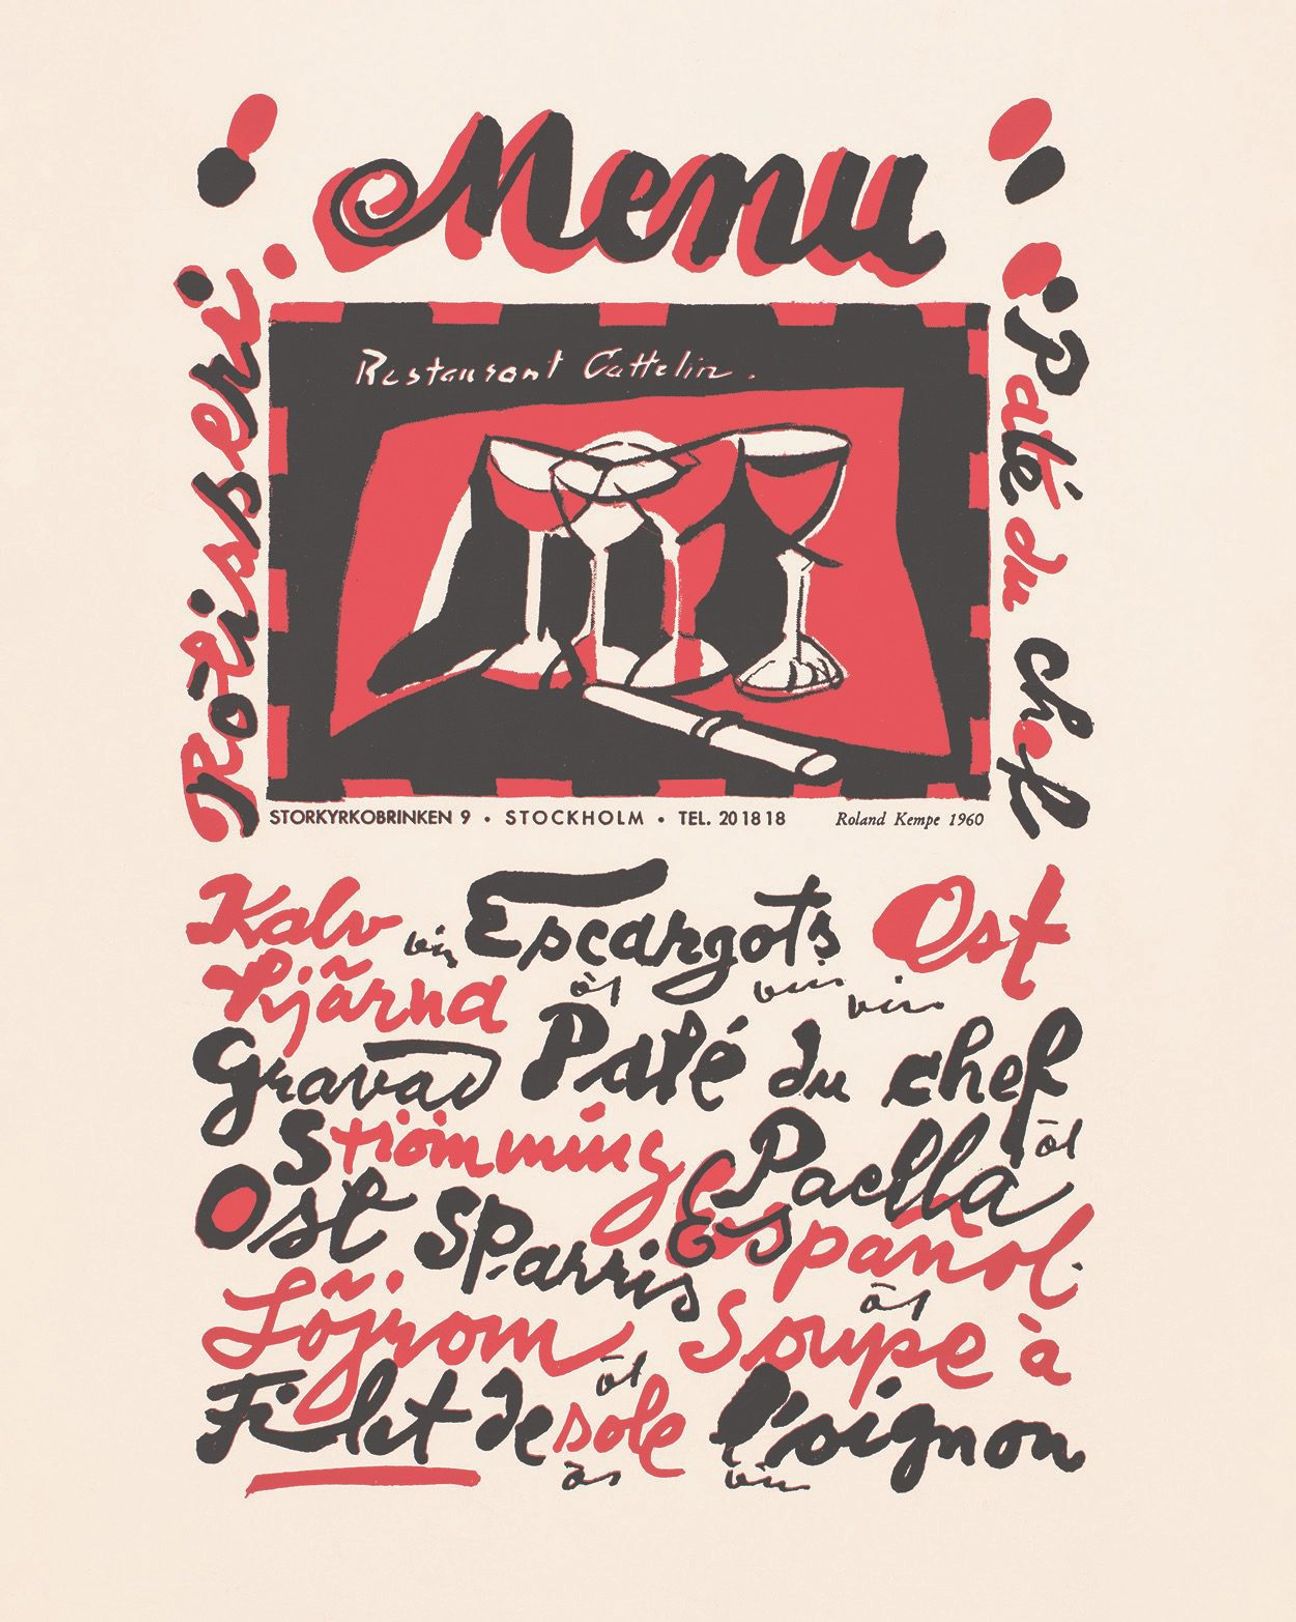 Menu
Rôtisseri
Restaurant Cattelin.
Paté du chef
STORKYRKOBRINKEN 9 • STOCKHOLM • TEL. 20 18 18
Roland Kempe 1960
Kalv vin Escargots Ost
hjärna öl vin vin
Gravad Paté du chef
Strömming Paella öl
Ost Sparris Español.
Löjrom öl Soupe à
Filet de sole öl l'oignon
vin